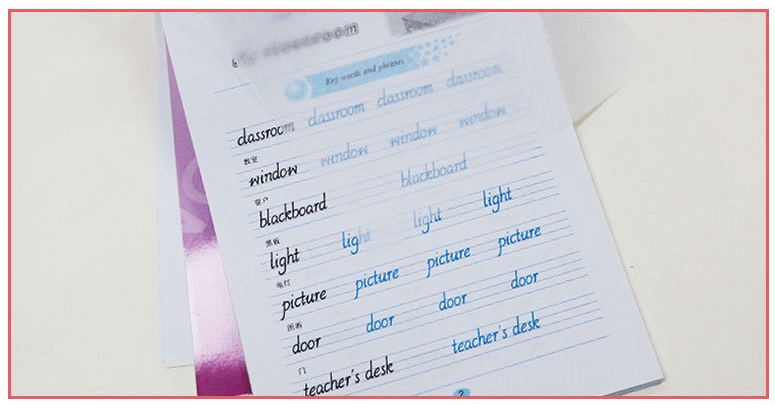 Key words and phrases
classroom classroom classroom classroom
教室
window window window window
窗户
blackboard blackboard
黑板
light light light light
电灯
picture picture picture picture
图画
door door door door
门
teacher's desk teacher's desk
2